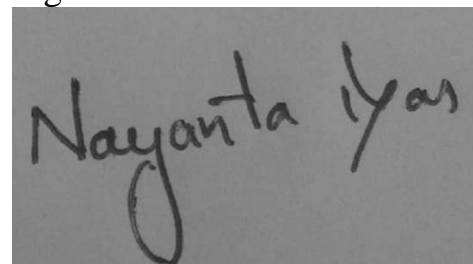 Nayanta iyas